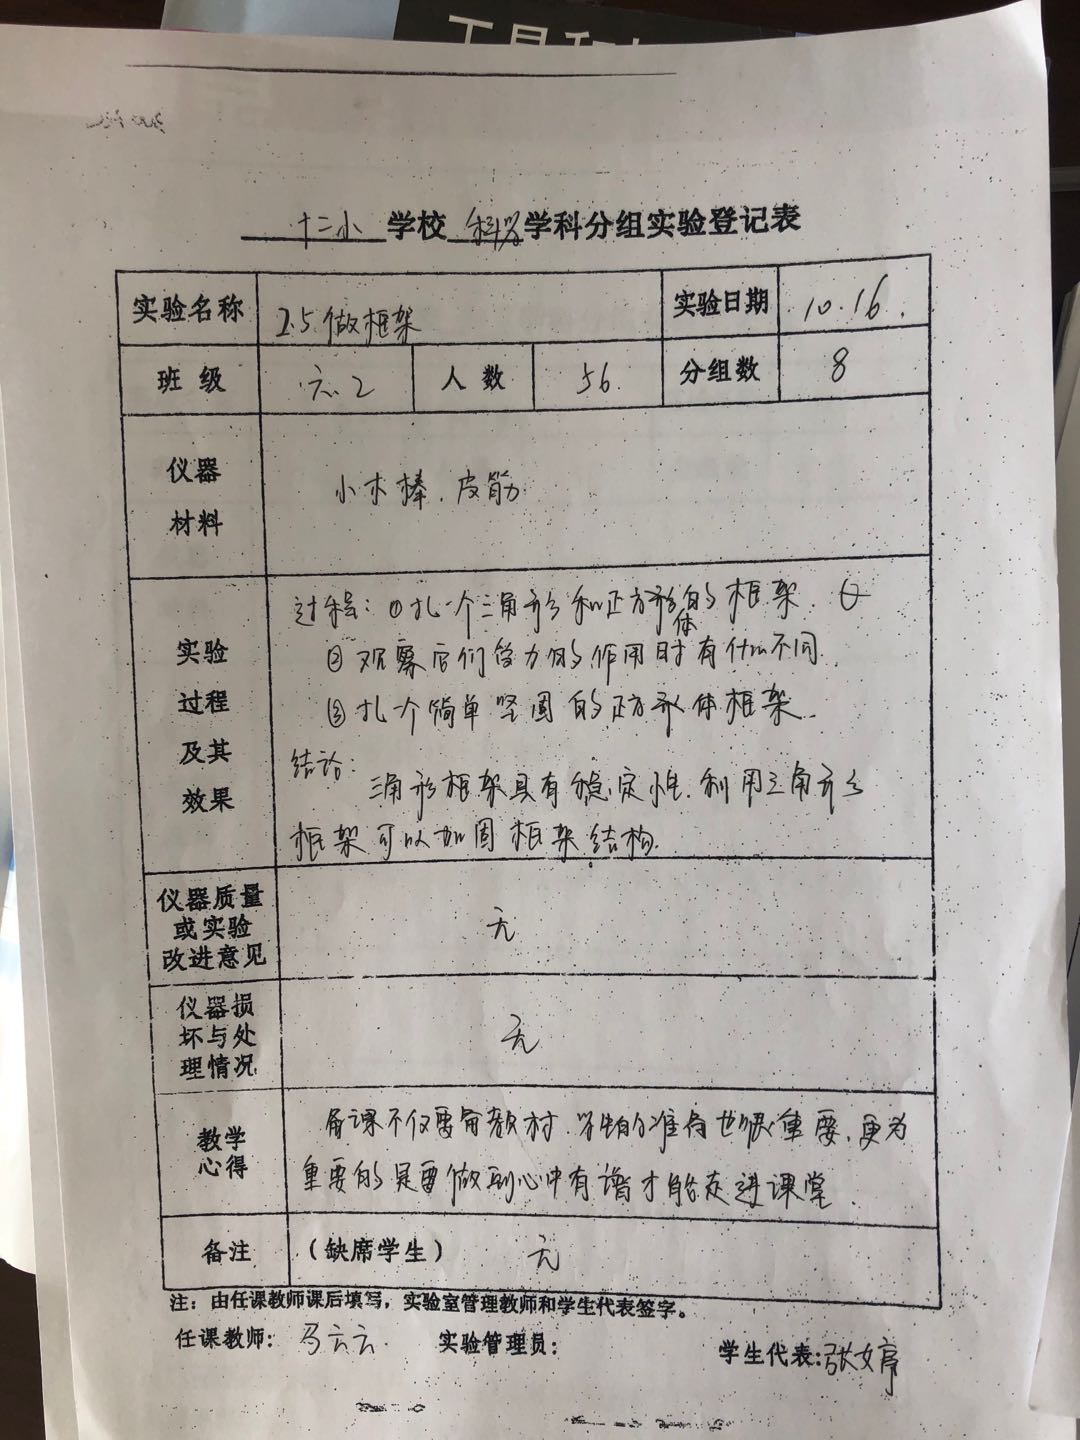 十二小学校科学学科分组实验登记表
实验名称 2.5做框架 实验日期 10.16.
班级 六.2 人数 56. 分组数 8
仪器
材料
小木棒.皮筋
实验
过程
及其
效果
过程:①扎一个三角形和正方形的框架.
体
②观察它们受力的作用时有什么不同.
③扎个简单坚固的正方形体框架.
结论:
三角形框架具有稳定性.利用三角形
框架可以加固框架结构.
仪器质量
或实验
改进意见
无
仪器损
坏与处
理情况
无
教学
心得
备课不仅要备教材.学生的准备也很重要.更为
重要的是要做到心中有谱才能走进课堂.
备注 (缺席学生) 无
注:由任课教师课后填写,实验室管理教师和学生代表签字。
任课教师: 马云云. 实验管理员: 学生代表:张文婷